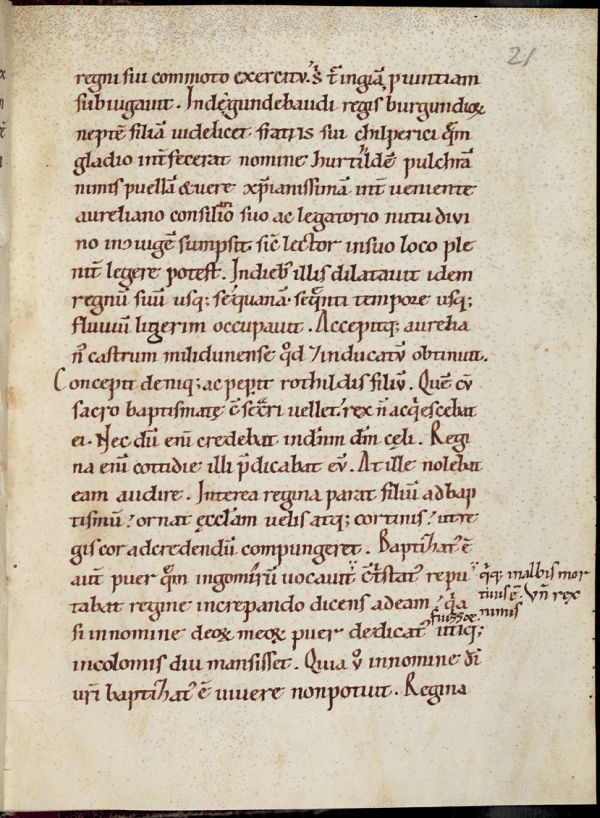 21
regni sui commoto exercitu. s; t̄ingiā puintiam
subiugauit. Indę gundebaudi regis burgundioꝝ
neptē filiā uidelicet fratris sui chilperici quē
gladio intfecerat nomine hurtildē pulchrā
nimis puellā & uere xp̄ianissimā int ueniente
aureliano consilio suo ac legatorio nutu diui
no in iugē sumpsit. sic̄ lector in suo loco ple
nit̄ legere potest. In dieb; illis dilatauit idem
regnū suū usq; sequanā. seqn̄ti tempore usq;
fluuiū ligerim occupauit. Accepitq; aurelia
n̄ castrum milidunense qd̄ ⁊ in ducatū obtinuit.
Concepit deniq; ac pepit rothildis filiū. Quē cū
sacro baptismatę c̄secr̄ri uellet. rex n̄ acqescebat
ei. Nec dū eni credebat in dn̄m dm̄ cęli. Regi
na eni cottidie illi p̄dicabat eū. At ille nolebat
eam audire. Interea regina parat filiū ad bap
tismū. ornat ęccl̄am uelis atq; cortinis. ut re
gis cor ad credendū compungeret. Baptizat᾽ ē
aut̄ puer quē ingomirū uocauit. Ct̄stat᾽ repu
q̄q; in albis mor
tabat regine increpando dicens ad eam. qa
tuus ē. Vn̄ rex
numis
si in nomine deoꝝ meoꝝ puer dedicat᾽ utiq;
fuisset
incolomis diu mansisset. Quia ū in nomine di
uri baptizat᾽ ē uiuere non potuit. Regina